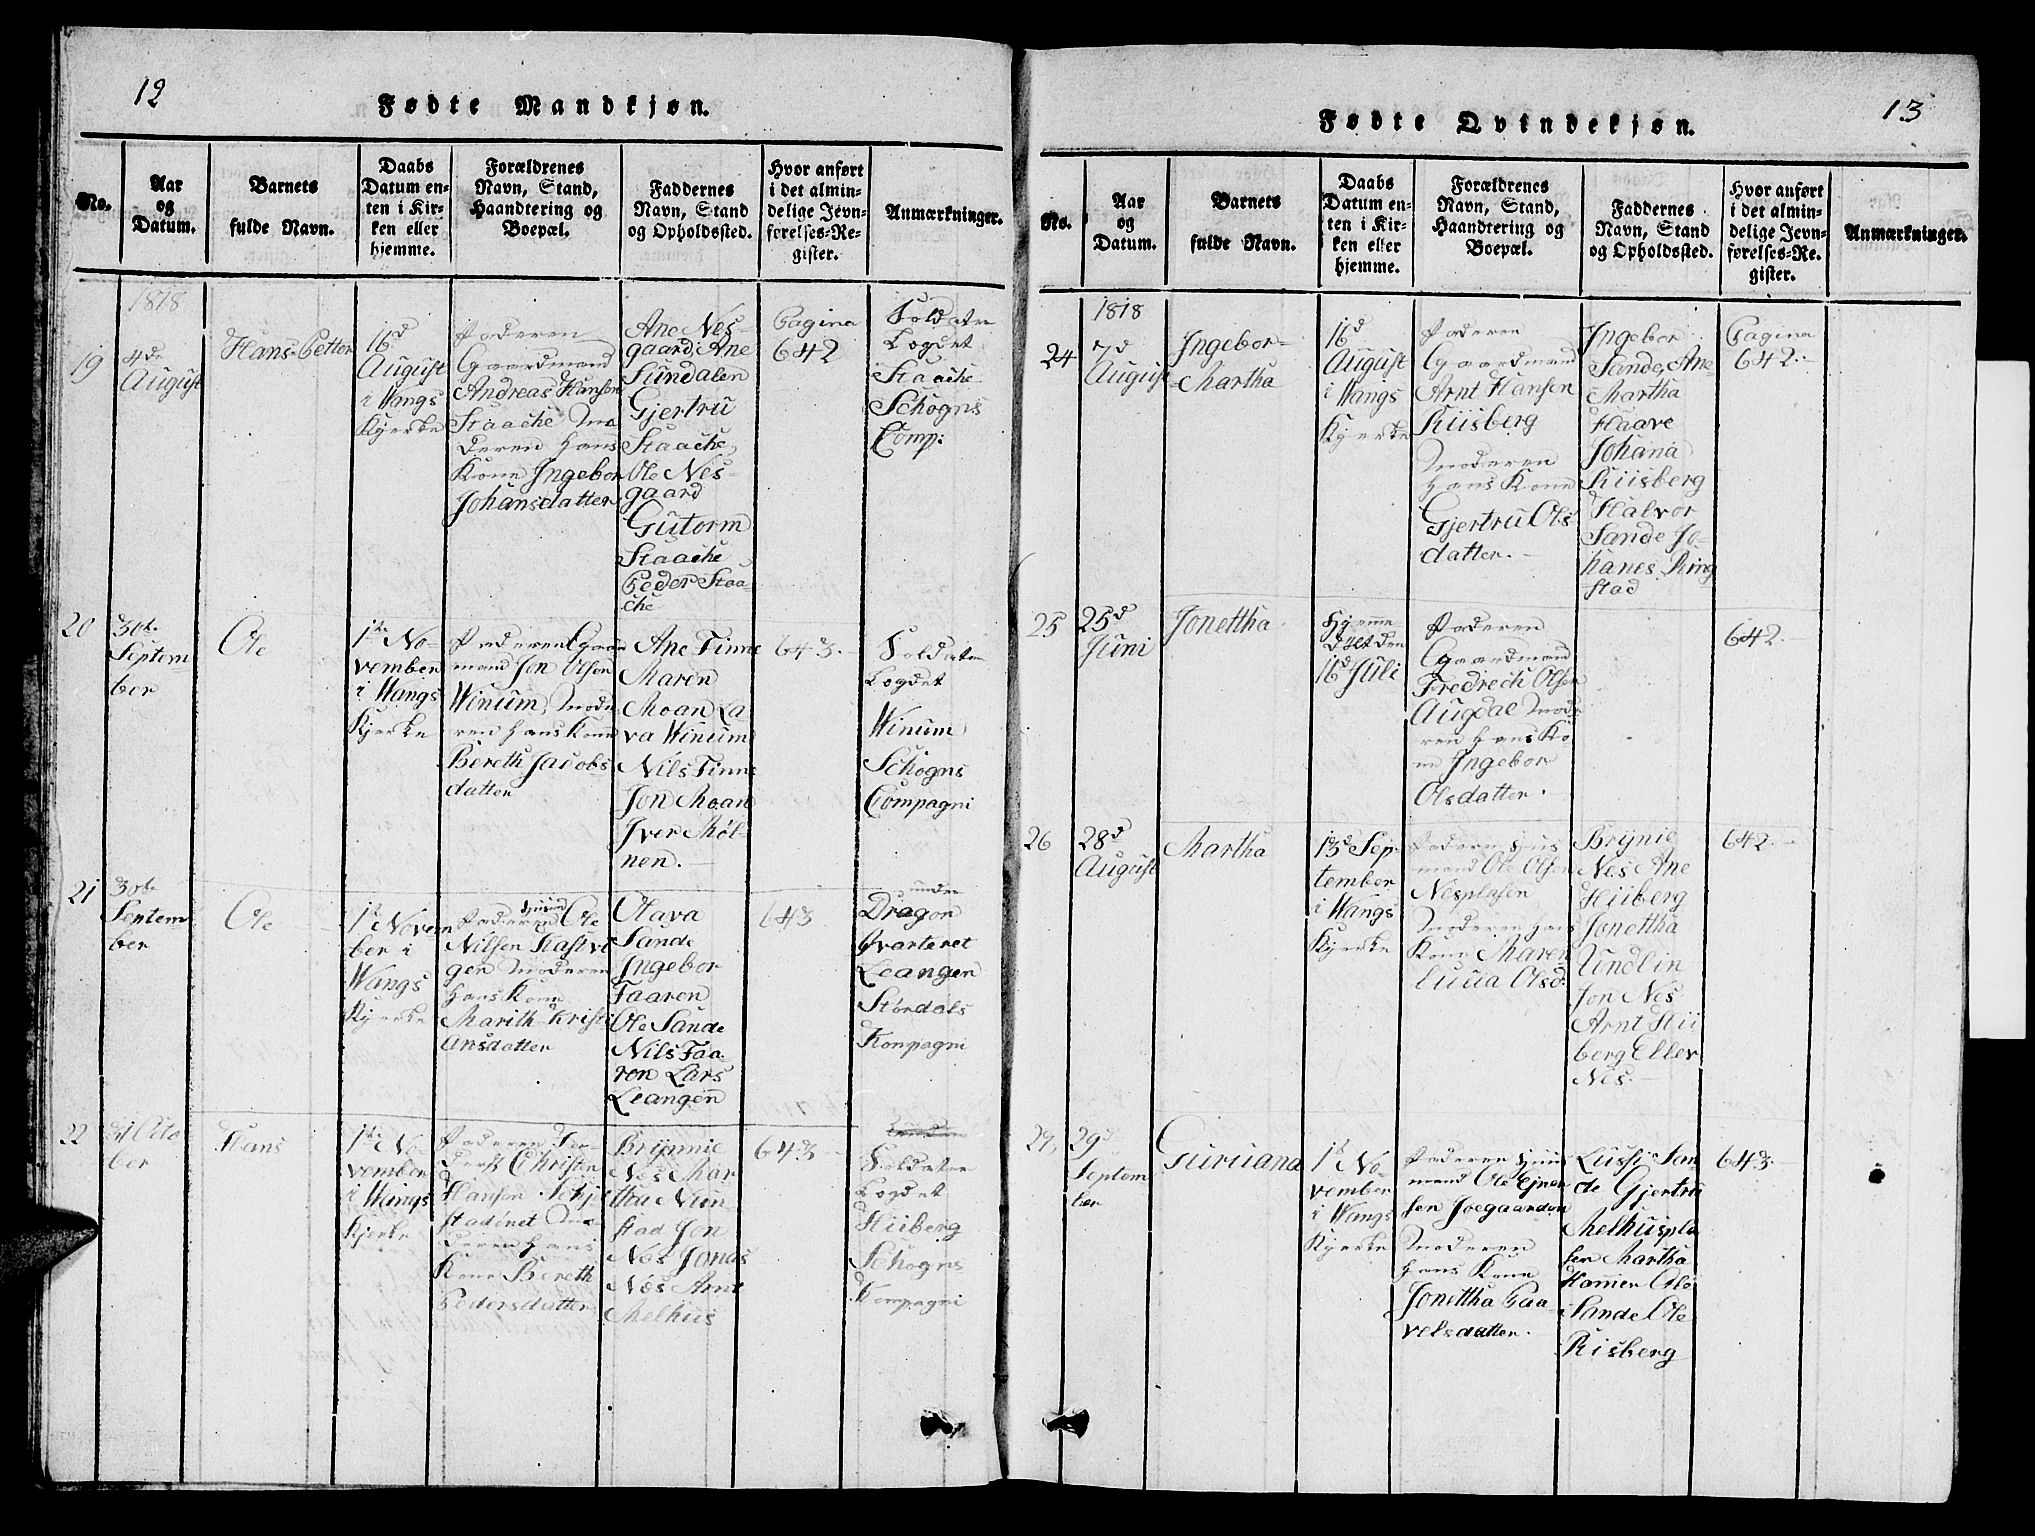 12
Fødte Mandkjøn.
No.
Aar
og
Datum.
Barnets
fulde Navn.
Daabs
Datum en-
ten i Kir-
ken eller
hjemme.
Forældrenes
Navn, Stand,
Haandtering og
Boepæl.
Faddernes
Navn, Stand
og Opholdssted.
Hvor anført
i det almin-
delige Jevn-
førelses-Re-
gister.
Anmærkninger.
1818
19
4de
August
Hans Petter
16d
August
i Wangs
Kjerke
Faderen
Gaardmand
Andreas Hansen
Staache Mo
deren Hans
Kone Ingebor
Johansdatter
Ane Nes-
gaard Ane
Sundalen
Gjertru
Staache
Ole Nes-
gaard
Gutorm
Staache
Peder Staa-
che
Pagina
642
Soldater
Logdet
Staache
Schogns
Comp:
20
30te
Septem
ber
Ole
1te No-
vember
i Wangs
Kjerke
Faderen Gaar
mand Jon Olsen
Winum, Mode
ren Hans Kone
Bereth Jacobs
datter
Ane Finne
Maren
Moan La
va Winum
Nils Finne
Jon Moan
Iver Møl-
nen.
643.
Soldater
Logdet
Winum
Schogns
Compagni
21
30te
Septem
ber
Ole
1te Novem
ber i
Wangs
Kjerke
Faderen Ole
Nilsen Kastvi
gen Moderen
Hans Kone
Marith Kristi
ansdatter
Olava
Sande
Ingebor
Faaren
Ole Sande
Nils Faa-
ren Lars
Leangen
643
under
Dragon
Qvarteret
Leangen
Stördals
Kompagni
22
Octo
ber
Hans
1te No-
vember
i Wangs
Kjerke
Faderen
Christen
Hansen
Mo
deren Hans
Kone Bereth
Pedersdatter
Brynnie
Nes Mar
tha
stad Jon
Nes Jonas
Nes Arnt
Melhus
643
Soldater
Logdet
Hiiberg
Schogns
Kompagni
13
Fødte Qvindekjøn.
No.
Aar
og
Datum.
Barnets
fulde Navn.
Daabs
Datum en-
ten i Kir-
ken eller
hjemme.
Forældrenes
Navn, Stand,
Haandtering og
Boepæl.
Faddernes
Navn, Stand
og Opholdssted.
Hvor anført
i det almin-
delige Jevn-
førelses-Re-
gister.
Anmærkninger.
1818
24
7d
August
Ingebor-
Martha
16d
August
i Wangs
Kjerke
Faderen
Gaardmand
Arnt Hansen
Riisberg
Moderen
Hans Kone
Gjertru Ols
datter.
Ingebor
Sande, Ane
Martha
Haave
Johana
Riisberg
Halvor
Sande Jo-
hanes Ring
stad
Pagina
642.
25
25d
Juni
Jonettha
Hjemme
døet den
16d Juli
Faderen
Gaardmand
Fredrech Olsen
Augdal Mode
ren Hans Ko
ne Ingebor
Olsdatter.
642.
26
28d
August
Martha
13d Sep-
tember
i Wangs
Kjerke
Faderen Hus
mand Ole Olsen
Nesplasen
Moderen Hans
Kone Maren
Lucia Olsd.
Brynie
Nes Ane
Hiiberg
Jonettha
Undlin
Jon Nes
Arnt Hii
berg Eller
Nes.
642.
27,
29d
Septem
ber
Guruana
1te No-
vember
i Wangs
Kjerke
Faderen Huus
mand Ole Ejner
sen Joegaarden
Moderen
Hans Kone
Jonettha Paa
velsdatter.
Lussi San
de Gjertru
Melhuspla
sen Martha
Hamer Ole
Sande Ole
Risberg
643.